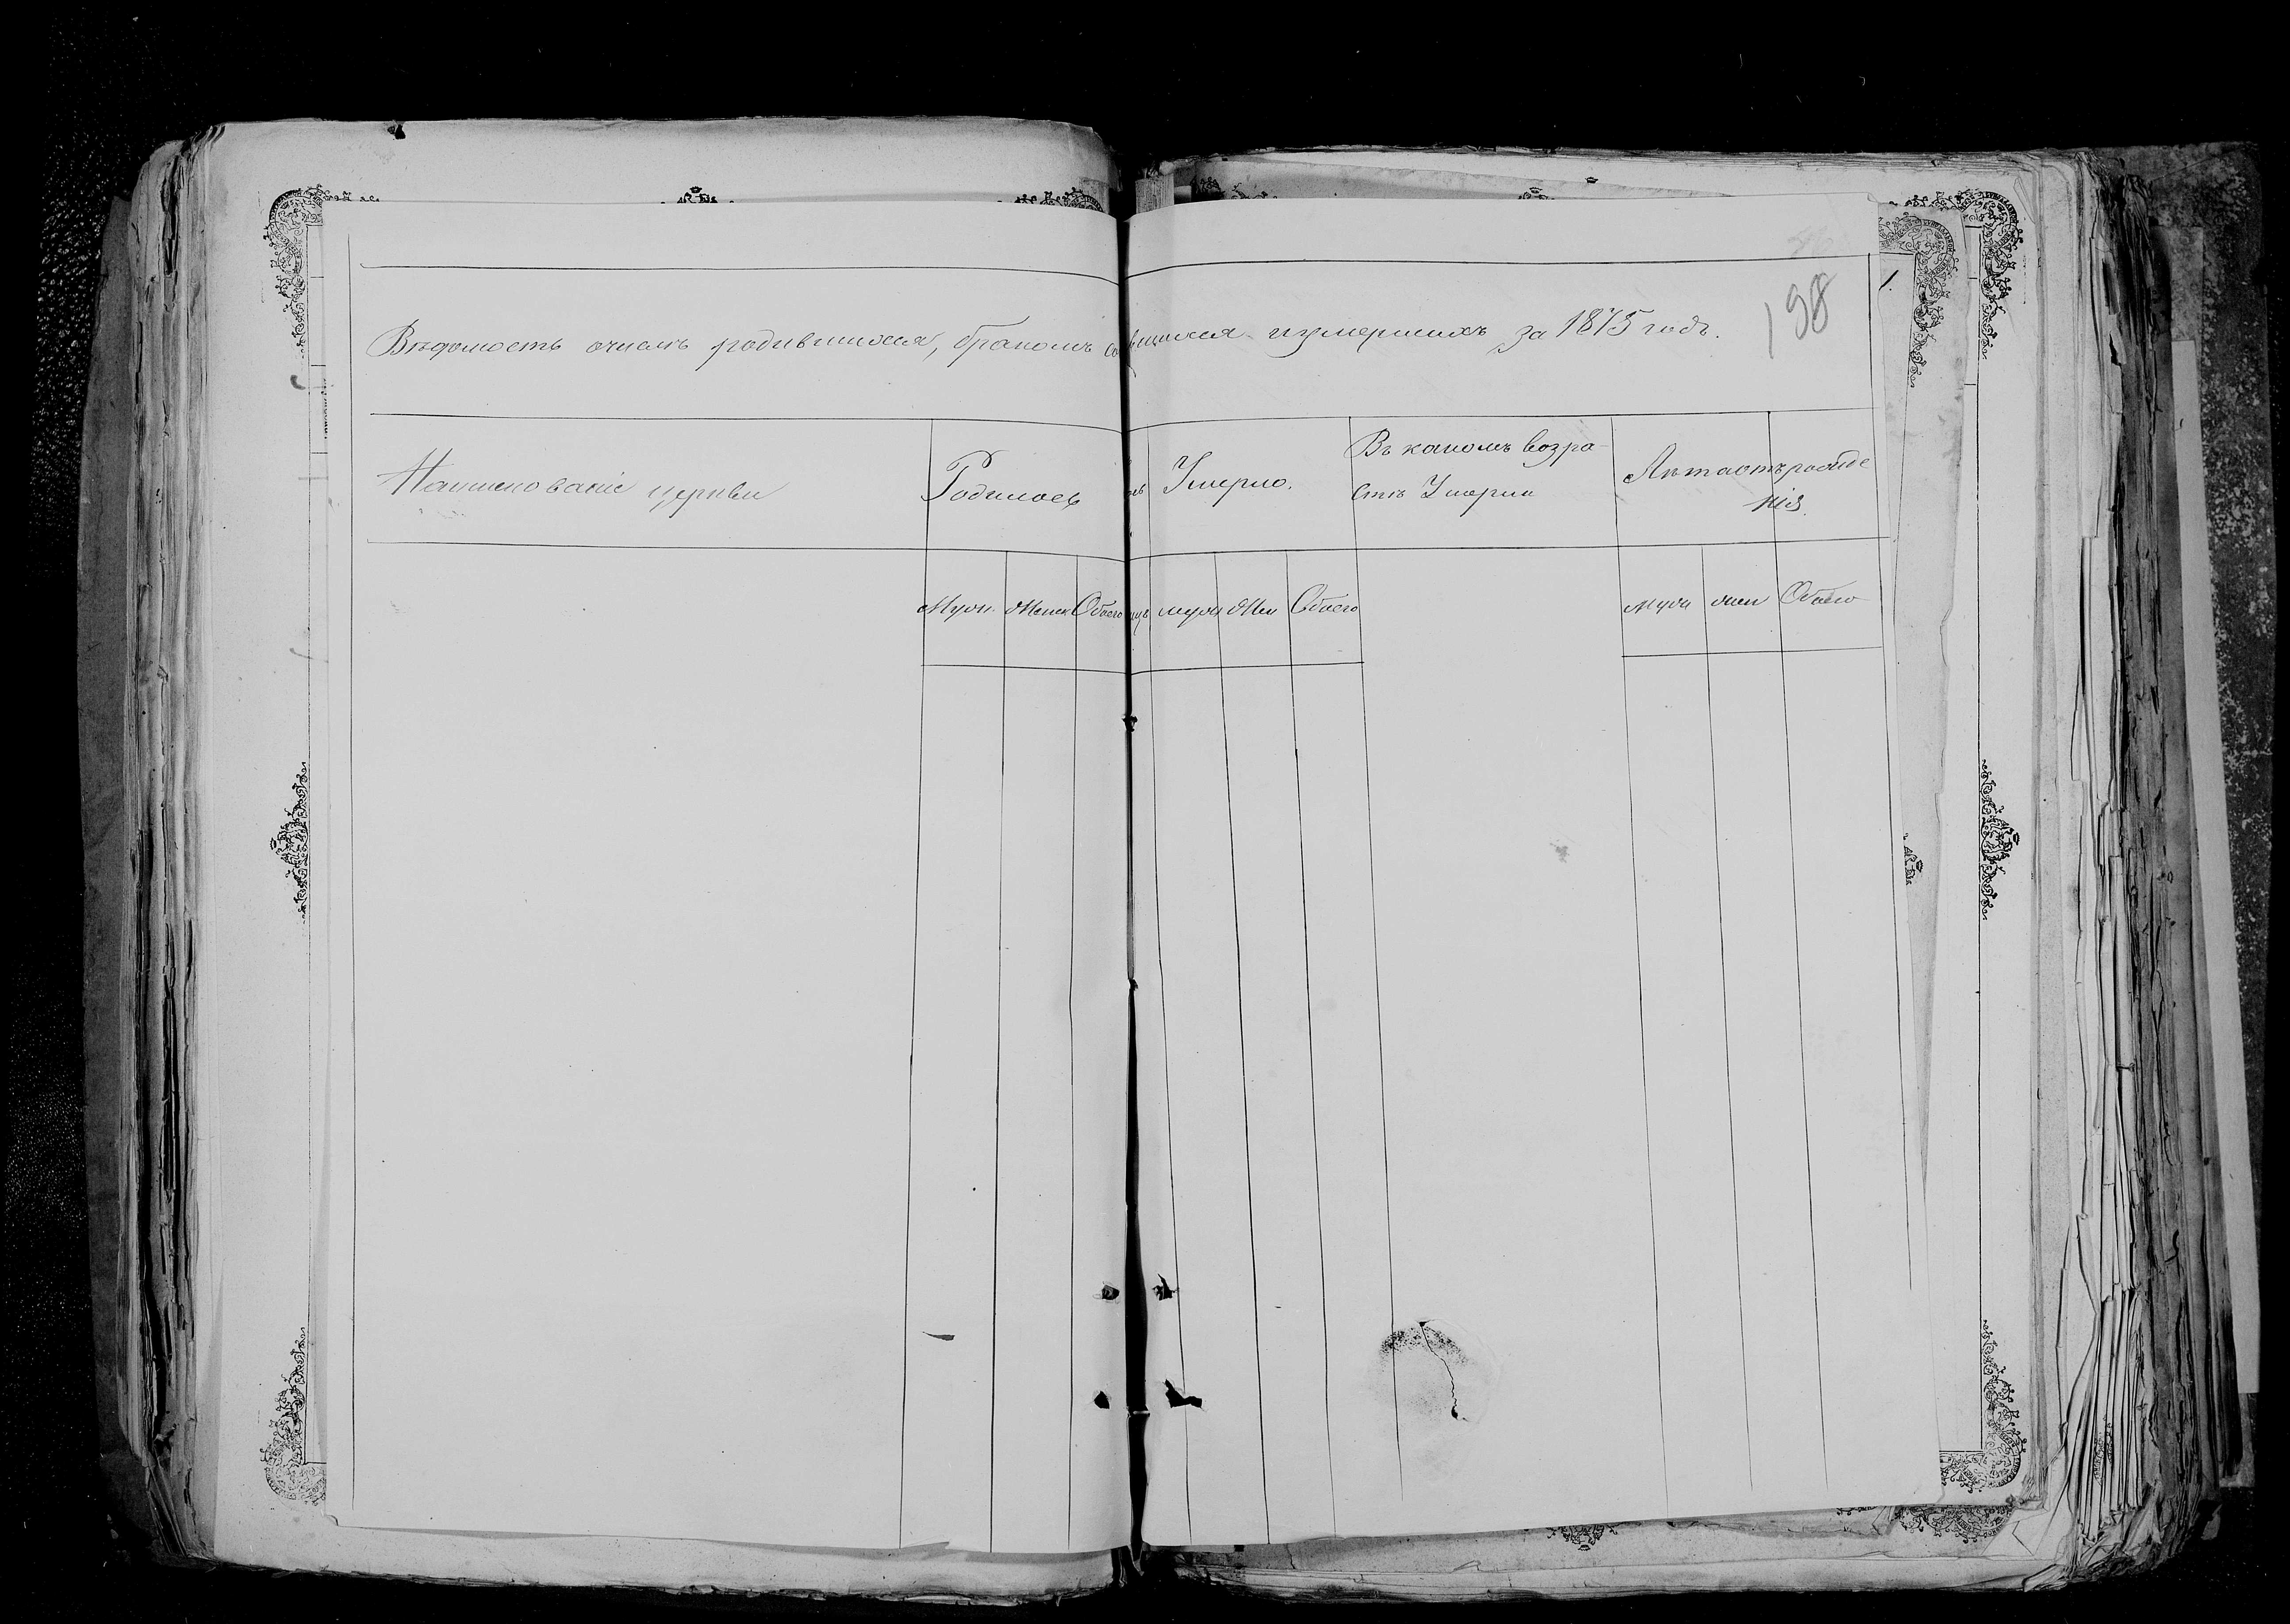 198
Вѣдомость о числѣ родившихся, бракомъ со вшихся и умершихъ за 1875 годъ.
Наименованіе церкви
Родилось
Умерло.
Въ какомъ возра-
стѣ Умерли
Лѣта отъ рожде
нія.
Муж. Женск Обоего
муж Жен Обоего
муж жен Обоего